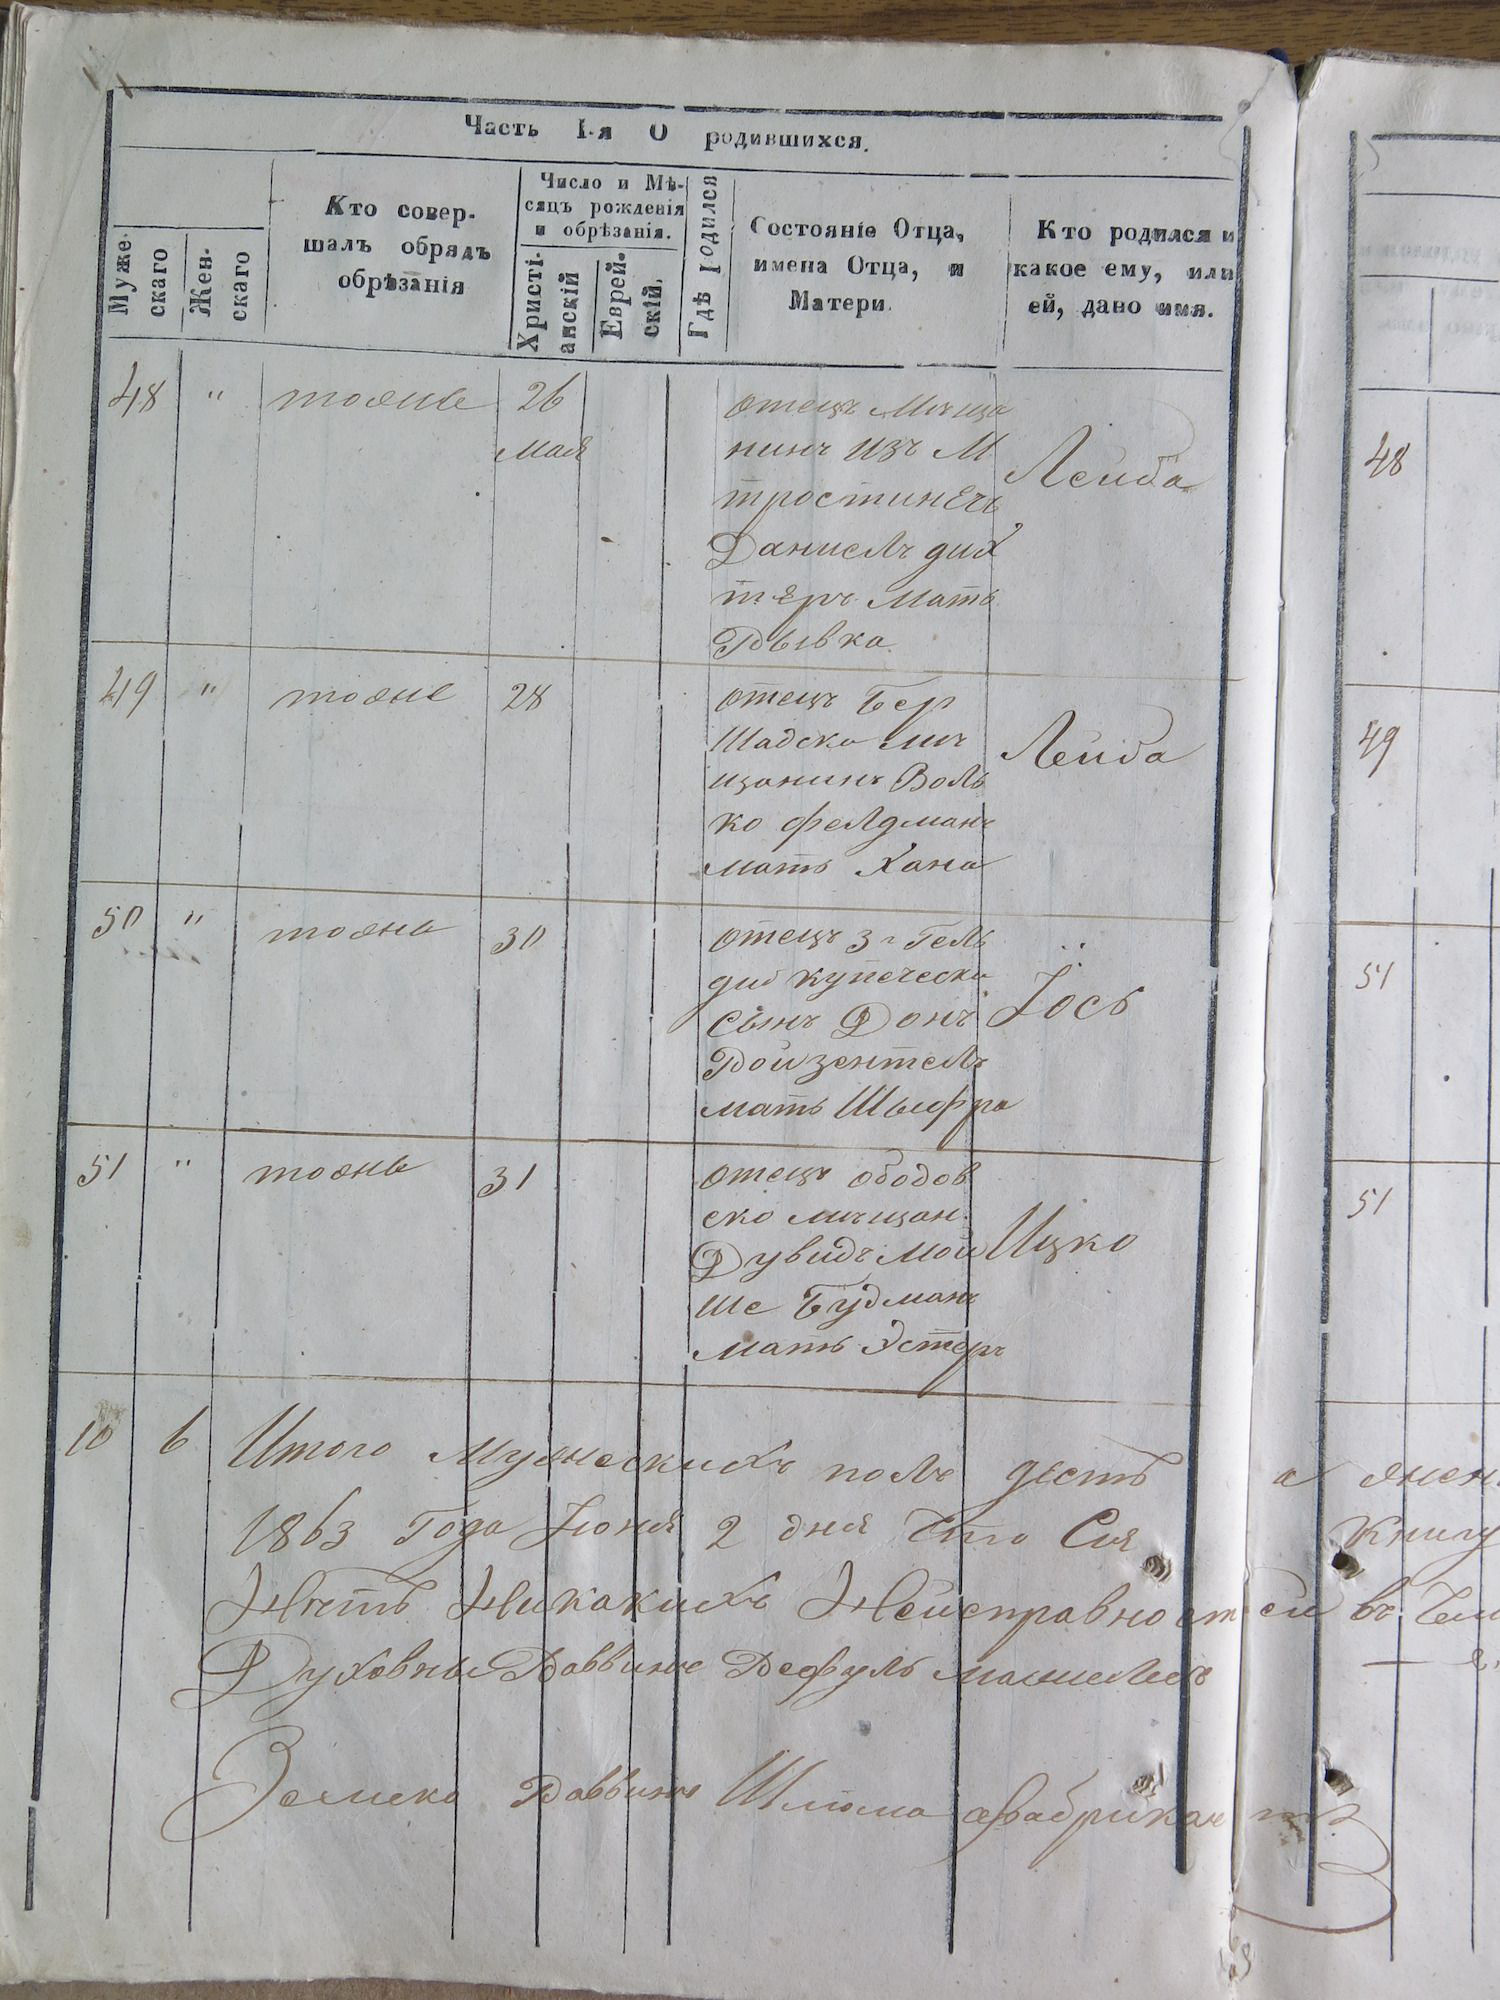 Часть I-я О родившихся.
Муже-
скаго
Жен-
скаго
Кто совер-
шалъ обрядъ
обрѣзанія
Число и Мѣ-
сяцъ рожденія
и обрѣзанія.
Христі-
анскій
Еврей-
скій.
Гдѣ родился
Состояніе Отца,
имена Отца, и
Матери.
Кто родился и
какое ему, или
ей, дано имя.
48 " тоже 26 отецъ Мѣща
мая нинъ изъ М
тростинецъ Лейба
Даниелъ дих
теръ Мать
Рывка
49 " тоже 28 отецъ Бер
шадско мѣ
щанинъ Воль Лейба
ко фелдманъ
мать Хана
50 " тоже 30 отецъ 3 г Гель
дии купеческа
сынъ Донъ Іось
Ройзентель
мать Шыфра
51 " тоже 31 отецъ ободов
ско мѣщан
Дувидъ Мой Ицко
ше Будманъ
мать Эстеръ
10 6 Итого Мужескихъ полъ десть а жен
1863 Года Іюня 2 дня Что Сия Книгу
Нѣтъ Никакихъ Нейсправностей въ
Духовны Раввинъ Рефуль
Раввинъ Шлиома Фабрикантъ
48
49
51
51